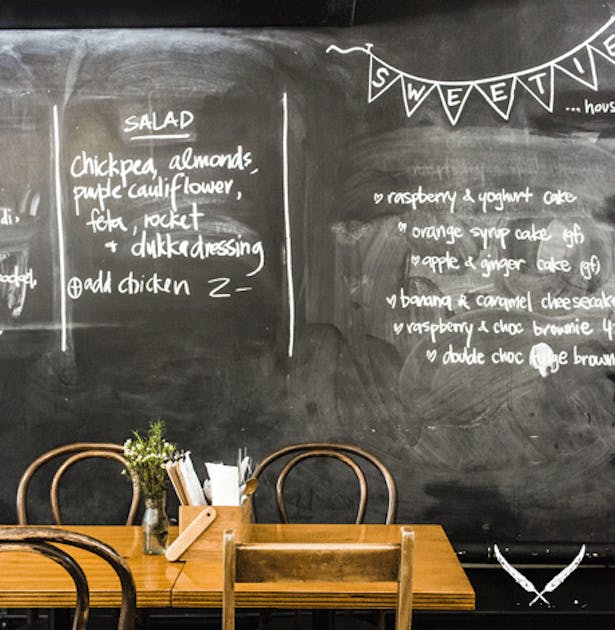 SALAD
chickpea, almonds,
purple cauliflower,
feta, rocket
+ dukka dressing
⊕ add chicken 2-
SWEETIE
...hous
♡ raspberry & yoghurt cake
♡ orange syrup cake (gf)
♡ apple & ginger cake (gf)
♡ banana & caramel cheesecake
♡ raspberry & choc brownie 4
♡ double choc fudge brown